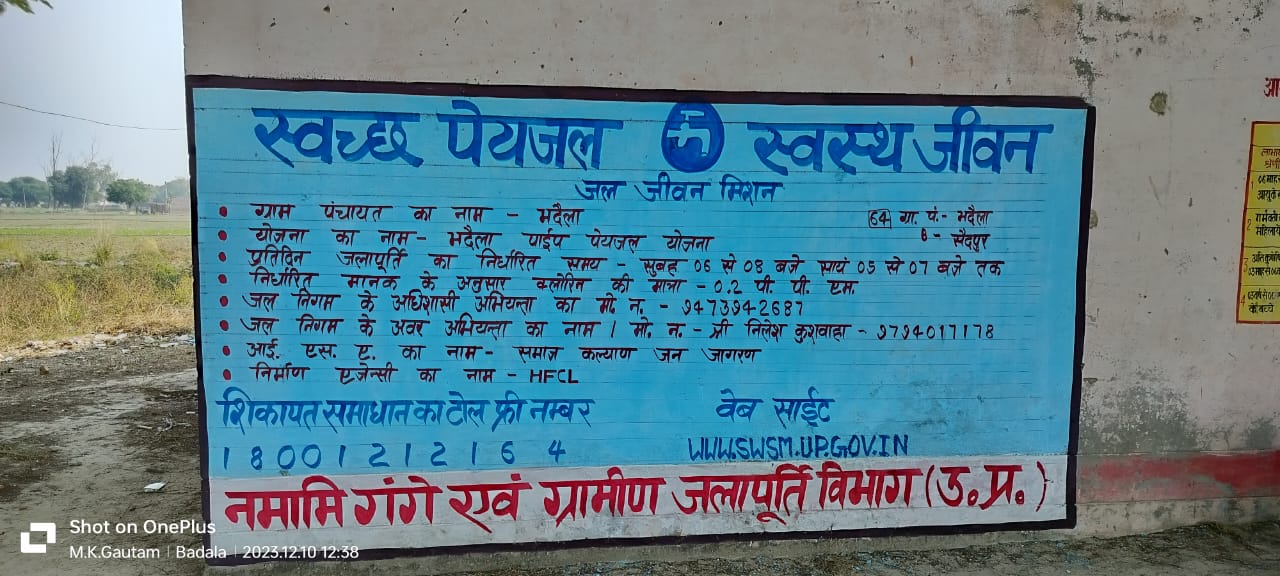 स्वच्छ पेयजल स्वस्थ जीवन
जल जीवन मिशन
• ग्राम पंचायत का नाम - भदैला
64 ग्रा. पं.- भदैला
• योजना का नाम- भदैला पाईप पेयजल योजना
B - सैदपुर
• प्रतिदिन जलापूर्ति का निर्धारित समय - सुबह 06 से 08 बजे सायं 05 से 07 बजे तक
• निर्धारित मानक के अनुसार क्लोरिन की मात्रा - 0.2 पी. पी. एम.
• जल निगम के अधिशासी अभियन्ता का मो. न. - 9473942687
• जल निगम के अवर अभियन्ता का नाम / मो. न. - श्री निलेश कुशवाहा - 9794017178
• आई. एस. ए. का नाम- समाज कल्याण जन जागरण
• निर्माण एजेन्सी का नाम - HFCL
शिकायत समाधान का टोल फ्री नम्बर
18001212164
वेब साईट
WWW.SWSM.UP.GOV.IN
नमामि गंगे एवं ग्रामीण जलापूर्ति विभाग (उ.प्र.)
Shot on OnePlus
M.K.Gautam | Badala | 2023.12.10 12:38